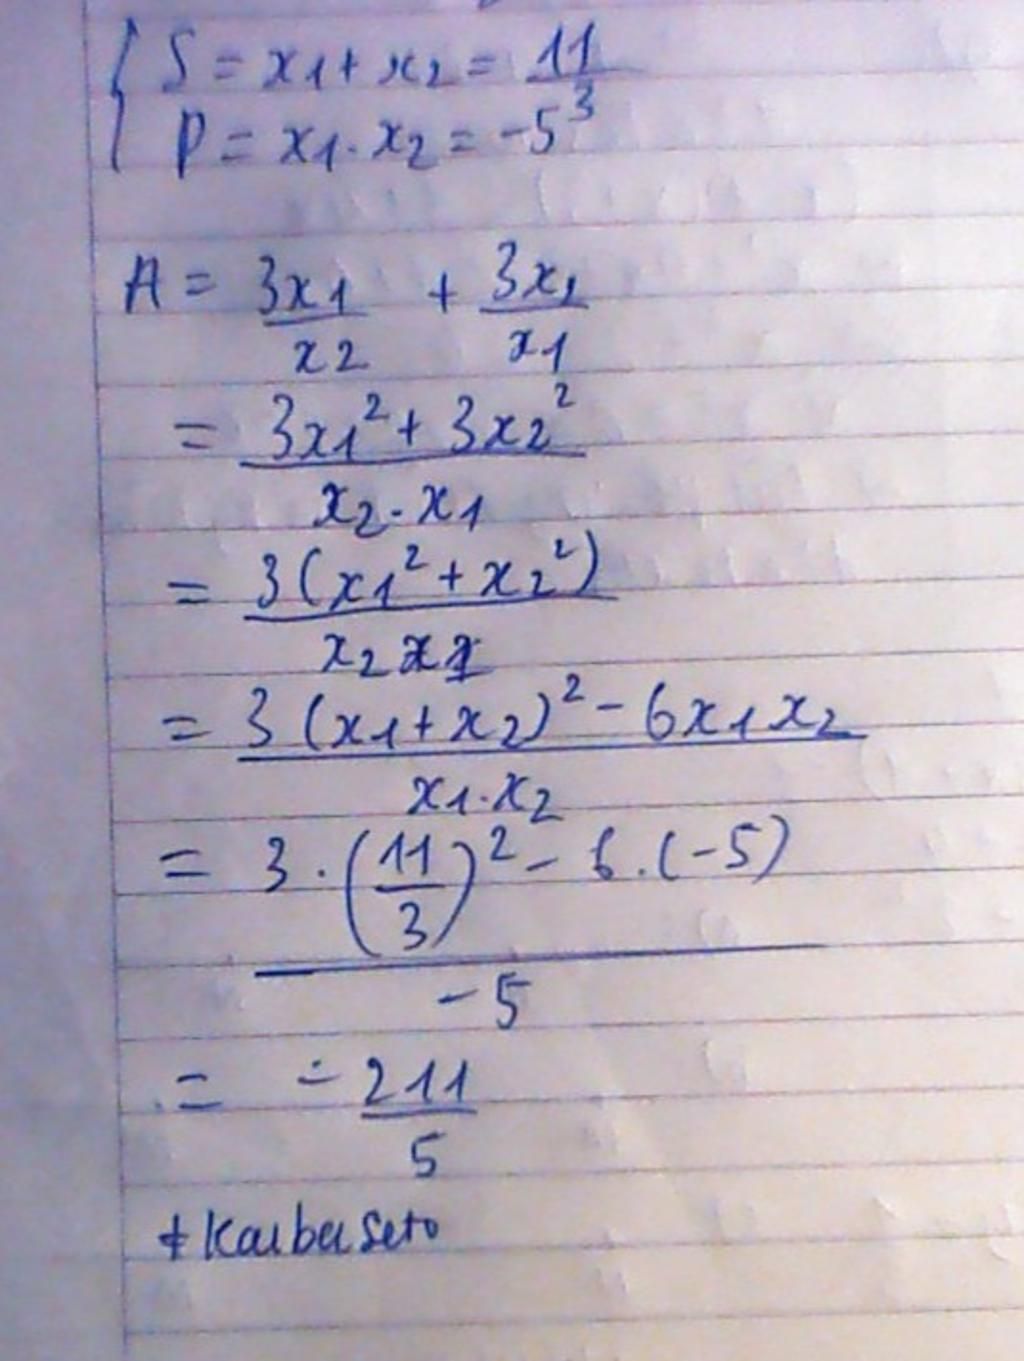 S = x1 + x2 = 11/3
P = x1 . x2 = -5
A = 3x1/x2 + 3x2/x1
= 3x1² + 3x2² / x2 . x1
= 3(x1² + x2²) / x2 x1
= 3(x1 + x2)² - 6x1x2 / x1 . x2
= 3 . (11/3)² - 6 . (-5) / -5
= -211/5
+ Kaiba Seto